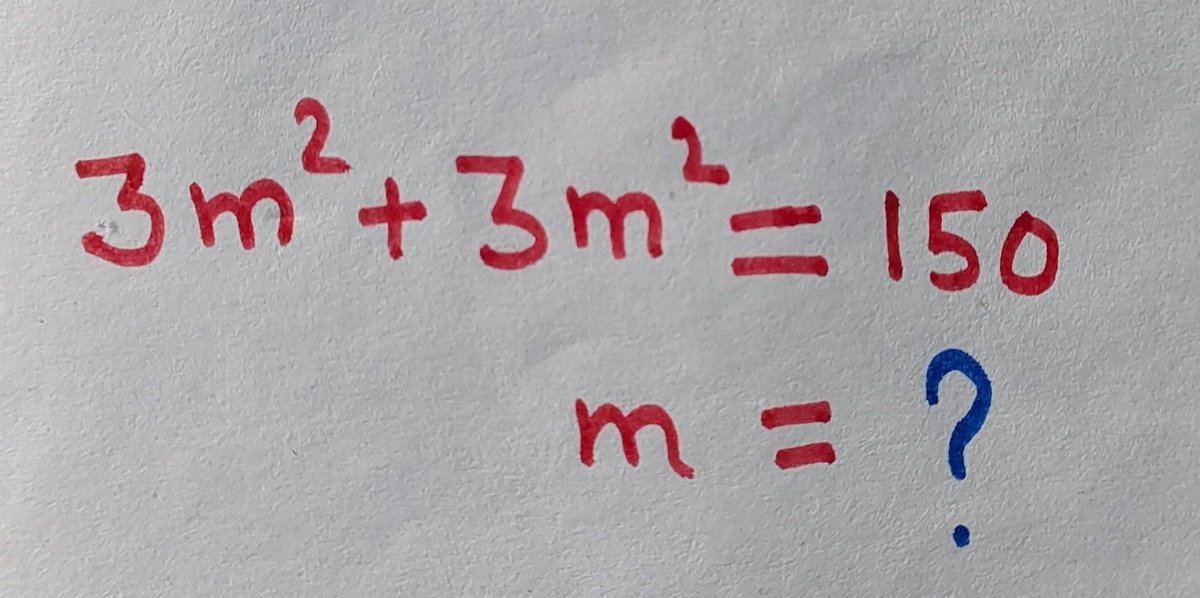 3m² + 3m² = 150
m = ?